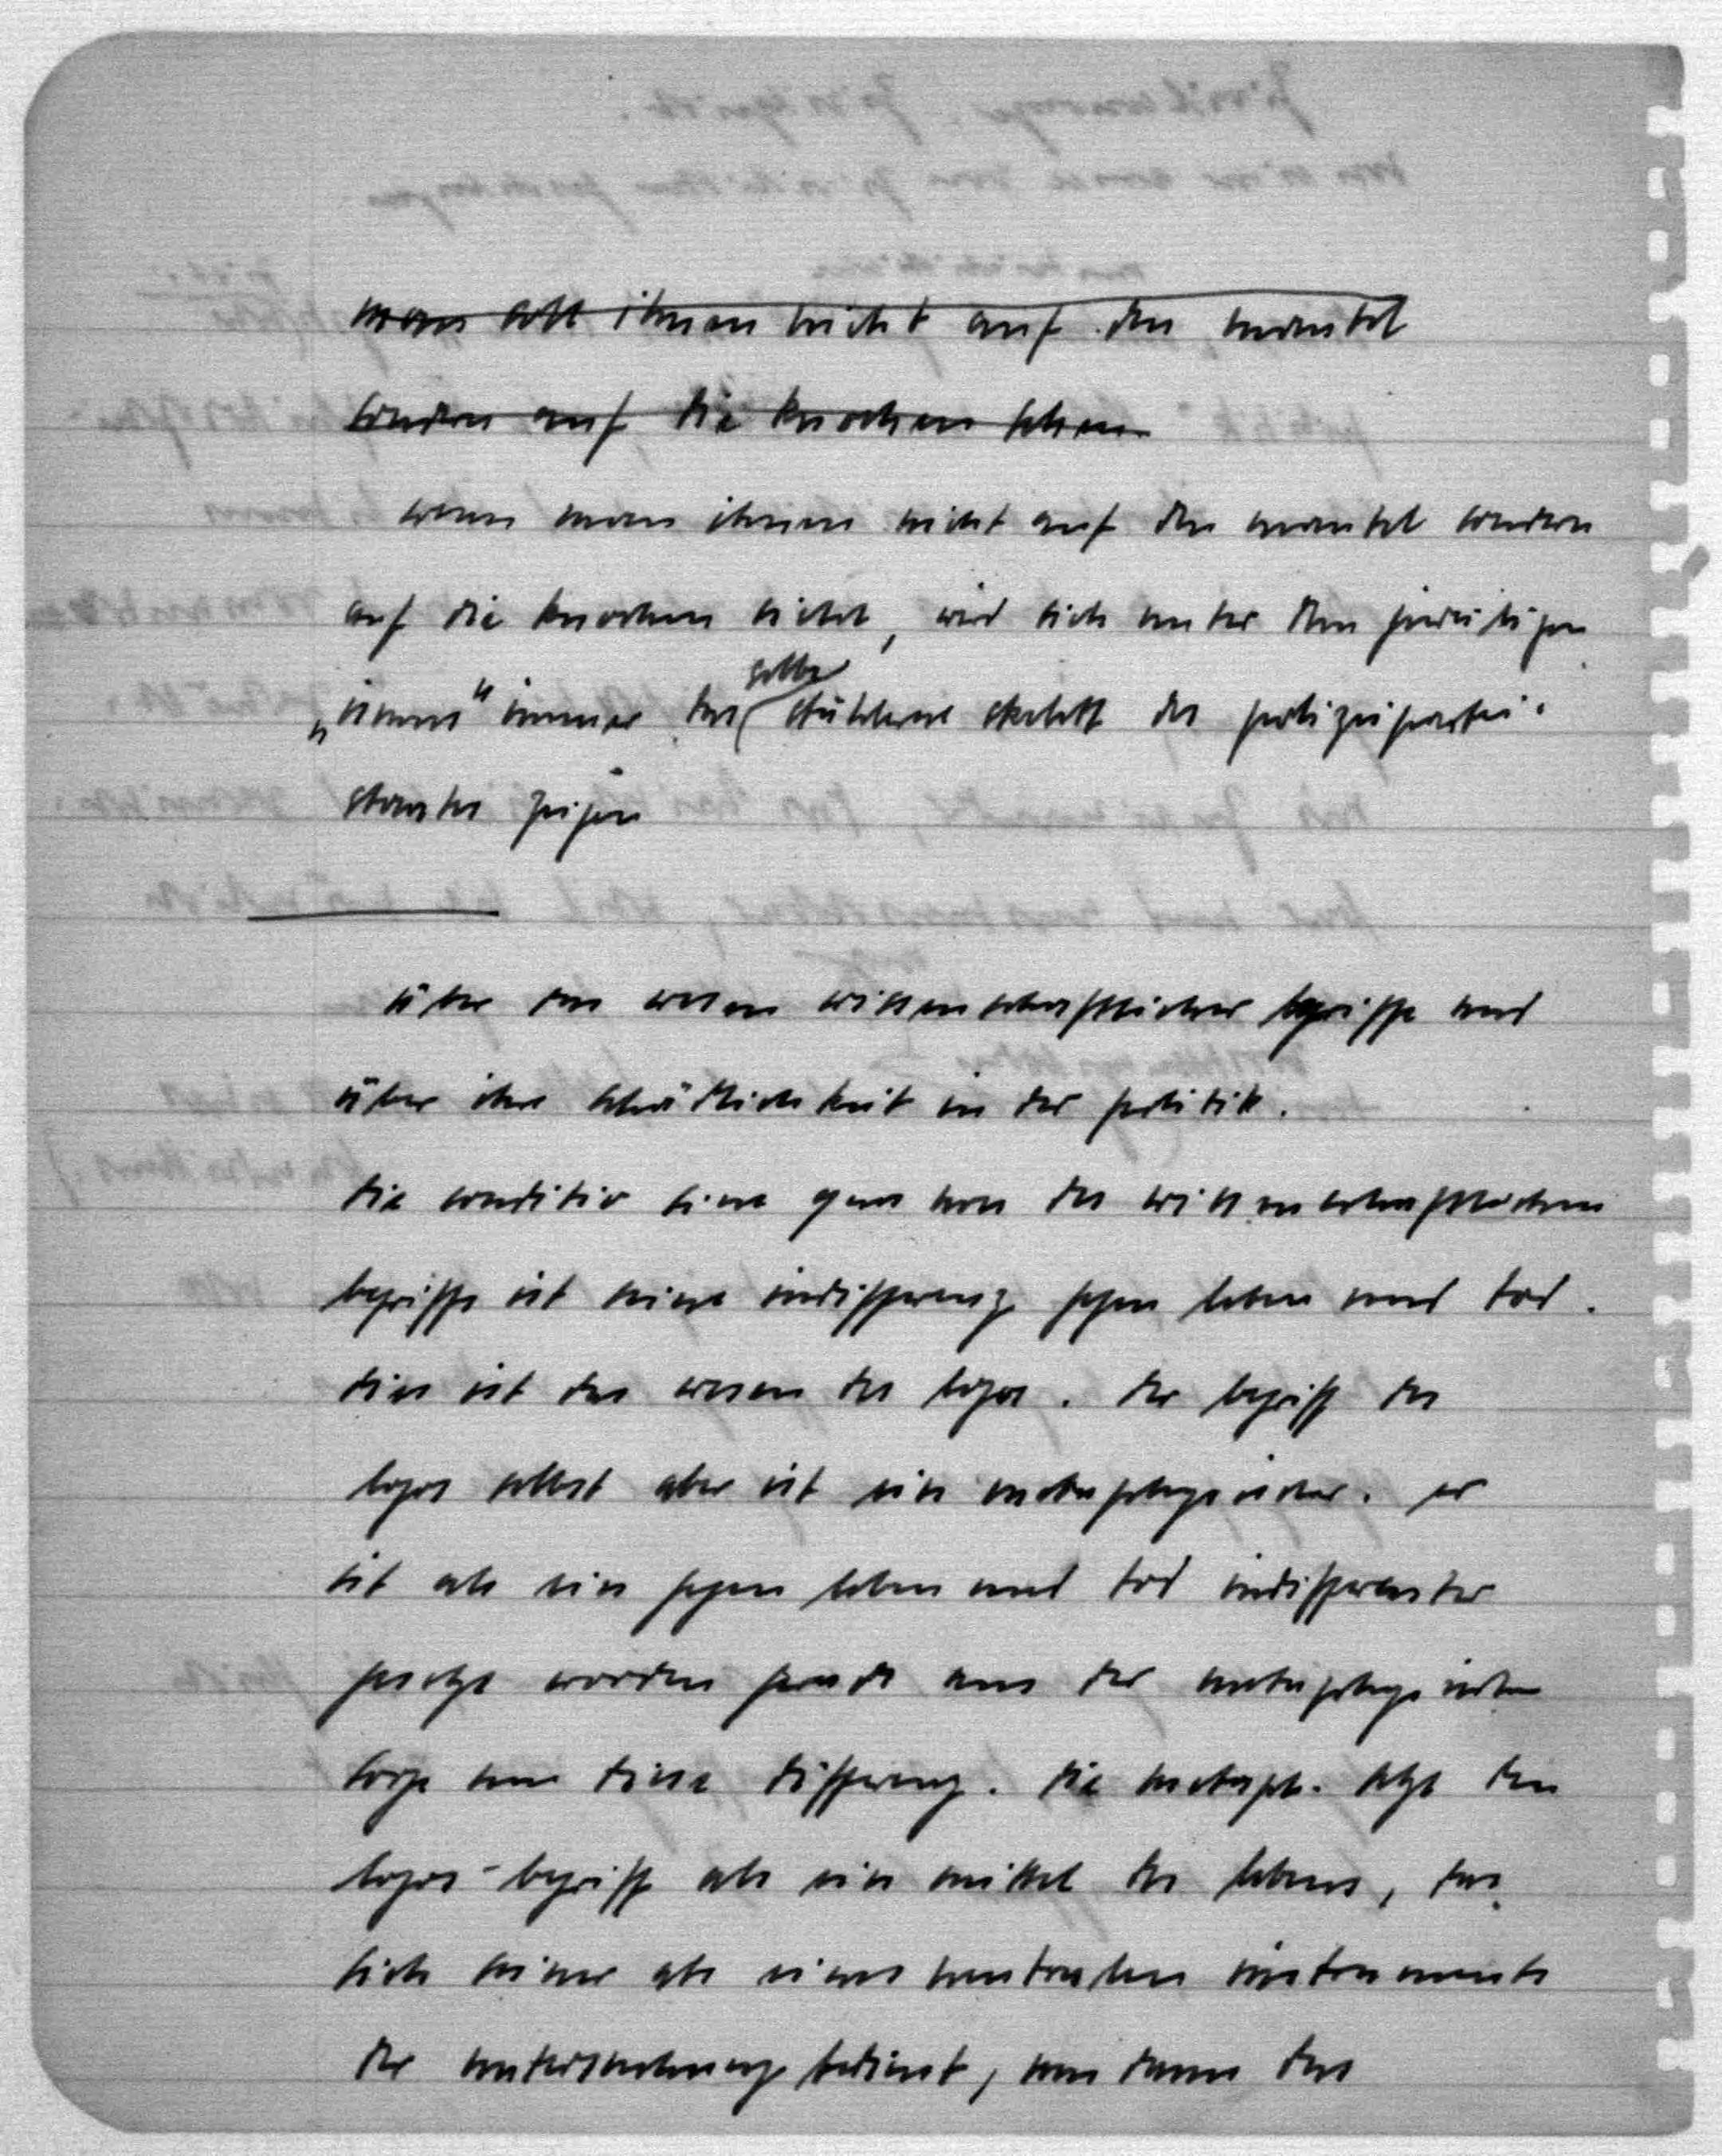 man soll ihnen nicht auf den mantel
sondern auf die knochen sehen
wenn man ihnen nicht auf den mantel sondern
auf die knochen sieht, wird sich unter den
„ismus“ immer das selbe stählerne skelett des polizeipartei-
staates zeigen
über das wesen wissenschaftlicher begriffe und
über ihre schädlichkeit in der politik.
die conditio sine qua non des wissenschaftlichen
begriffs ist seine indifferenz gegen leben und tod.
dies ist das wesen des logos. der begriff des
logos selbst aber ist ein metaphysischer. er
ist als ein gegen leben und tod indifferenter
gesetzt worden gerade aus der metaphysischen
sorge um diese differenz. die metaph. setzt den
logos-begriff als ein mittel des lebens, das
sich seiner als eines neutralen instruments
der untersuchung bedient, um dann das